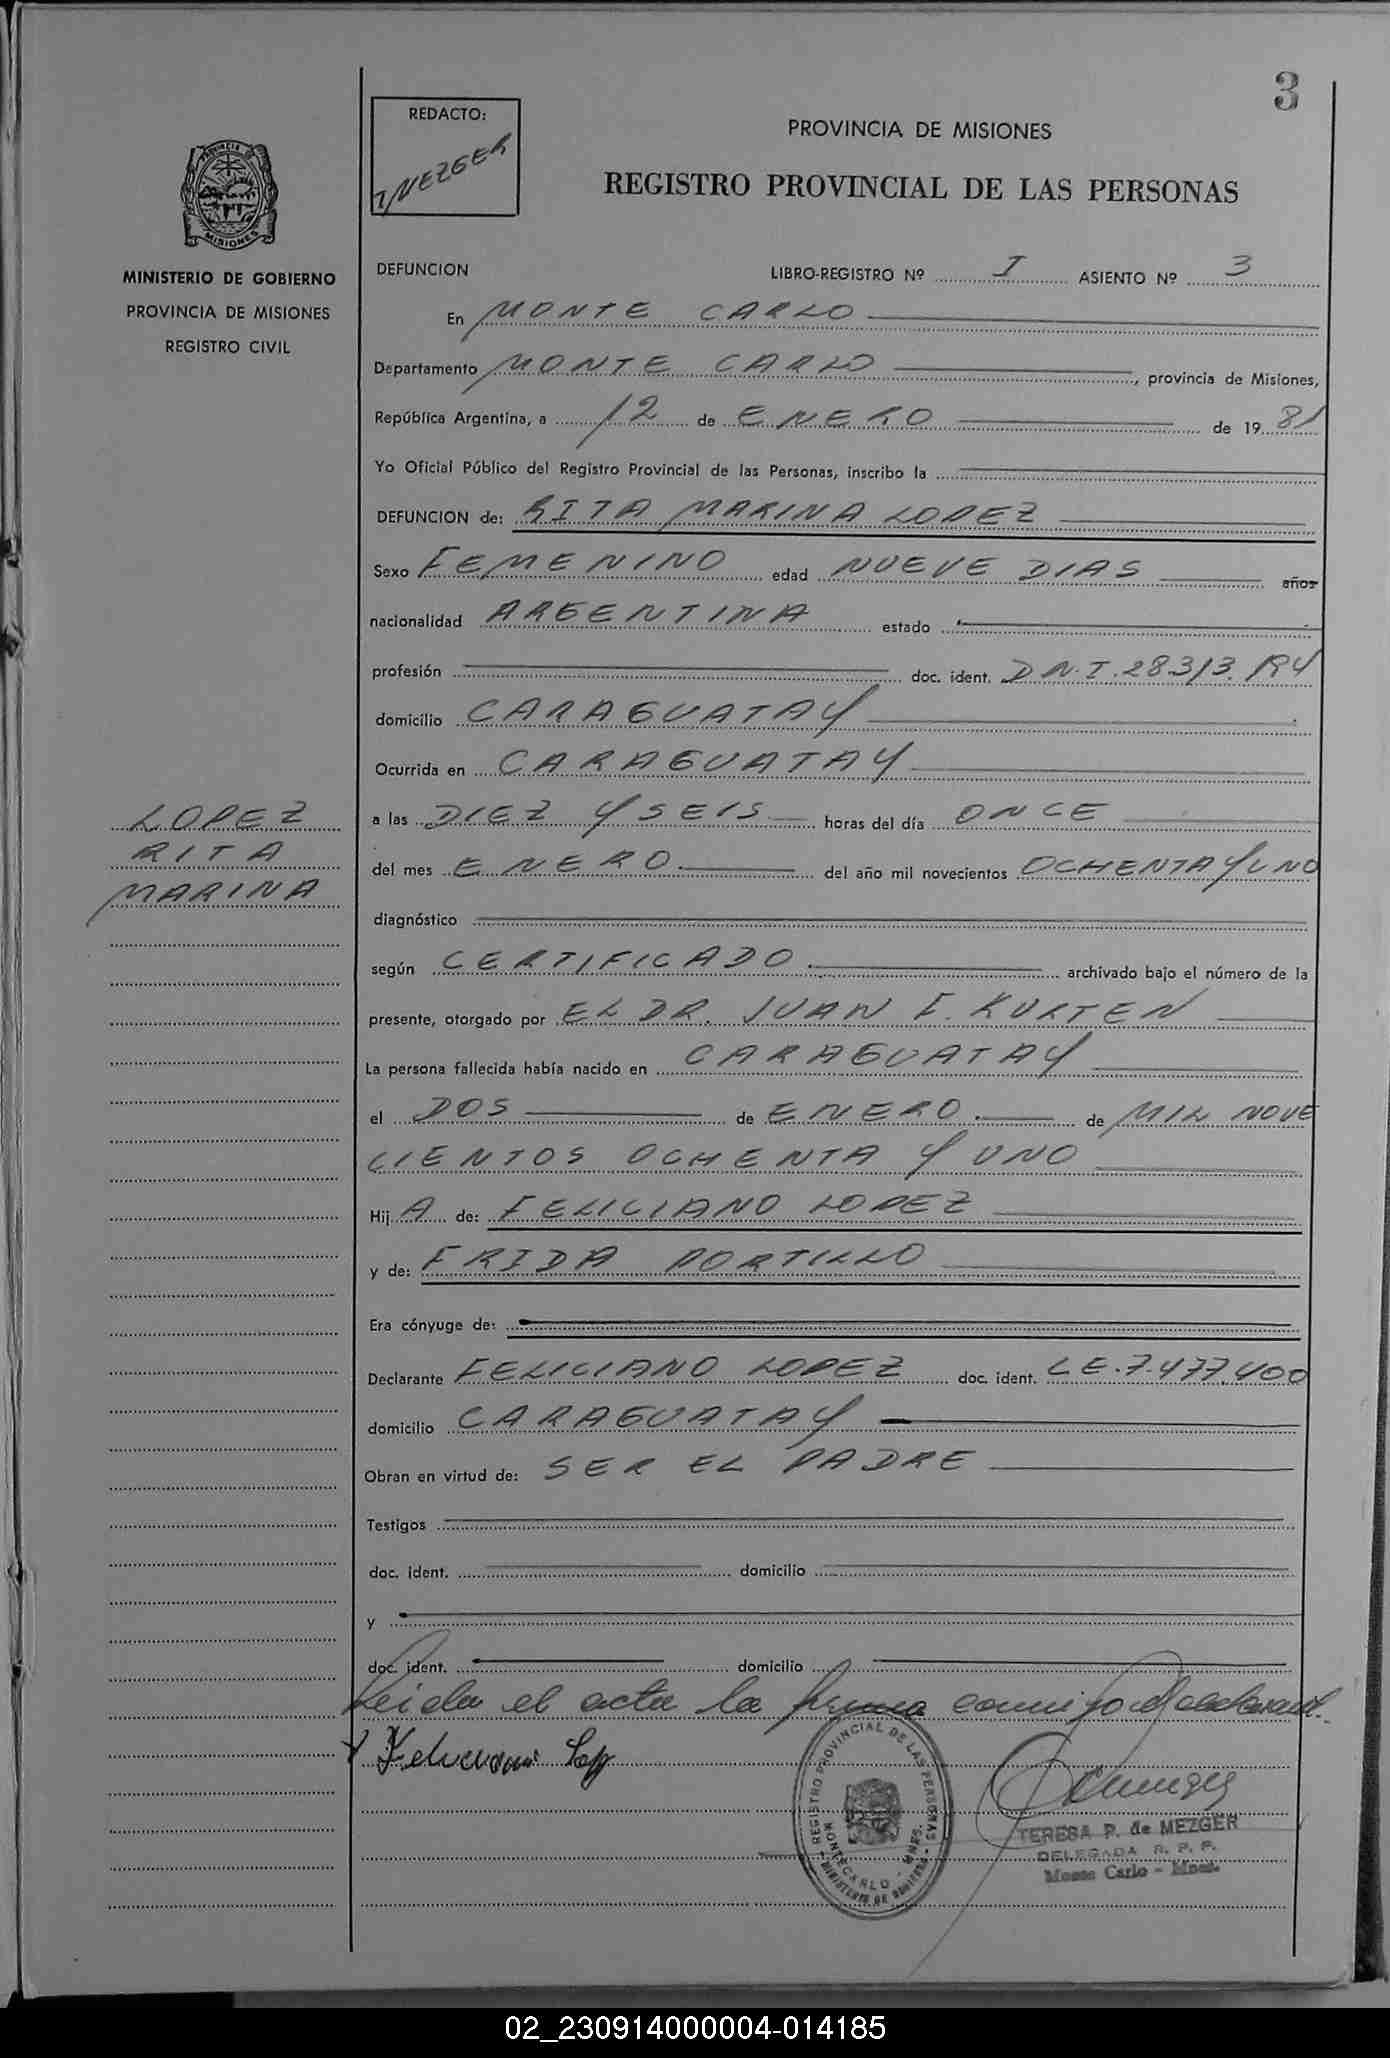 3
REDACTO:
MEZGER
PROVINCIA DE MISIONES
REGISTRO PROVINCIAL DE LAS PERSONAS
PROVINCIA DE
MISIONES
MINISTERIO DE GOBIERNO
PROVINCIA DE MISIONES
REGISTRO CIVIL
DEFUNCION LIBRO-REGISTRO Nº I ASIENTO Nº 3
En MONTE CARLO
Departamento MONTE CARLO, provincia de Misiones,
República Argentina, a 12 de ENERO de 19 81
Yo Oficial Público del Registro Provincial de las Personas, inscribo la
DEFUNCION de: RITA MARINA LOPEZ
Sexo FEMENINO edad NUEVE DIAS años
nacionalidad ARGENTINA estado
profesión doc. ident. D.N.I. 28.313.194
domicilio CARAGUATAY
Ocurrida en CARAGUATAY
a las DIEZ Y SEIS horas del día ONCE
del mes ENERO del año mil novecientos OCHENTA Y UNO
LOPEZ
RITA
MARINA
diagnóstico
según CERTIFICADO archivado bajo el número de la
presente, otorgado por EL DR. JUAN F. KURTEN
La persona fallecida había nacido en CARAGUATAY
el DOS de ENERO de MIL NOVE
CIENTOS OCHENTA Y UNO
Hij A de: FELICIANO LOPEZ
y de: FRIDA PORTILLO
Era cónyuge de:
Declarante FELICIANO LOPEZ doc. ident. L E. 7.477.400
domicilio CARAGUATAY
Obran en virtud de: SER EL PADRE
Testigos
doc. ident. domicilio
y
doc. ident. domicilio
Leida el acta la firma conmigo el declarant.
Feliciano
REGISTRO PROVINCIAL DE LAS PERSONAS
MONTECARLO - MNES.
MINISTERIO DE GOBIERNO
TERESA P. de MEZGER
DELEGADA R. P. P.
Monte Carlo - Mnes.
02_230914000004-014185